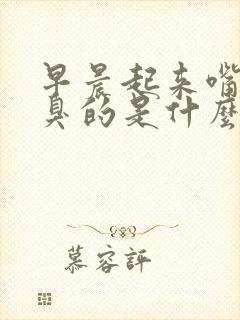 早晨起来嘴
臭的是什麼
慕容評